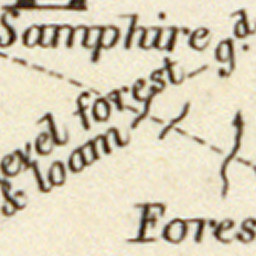 Samphire g.d
exel forest
& loam
Fores